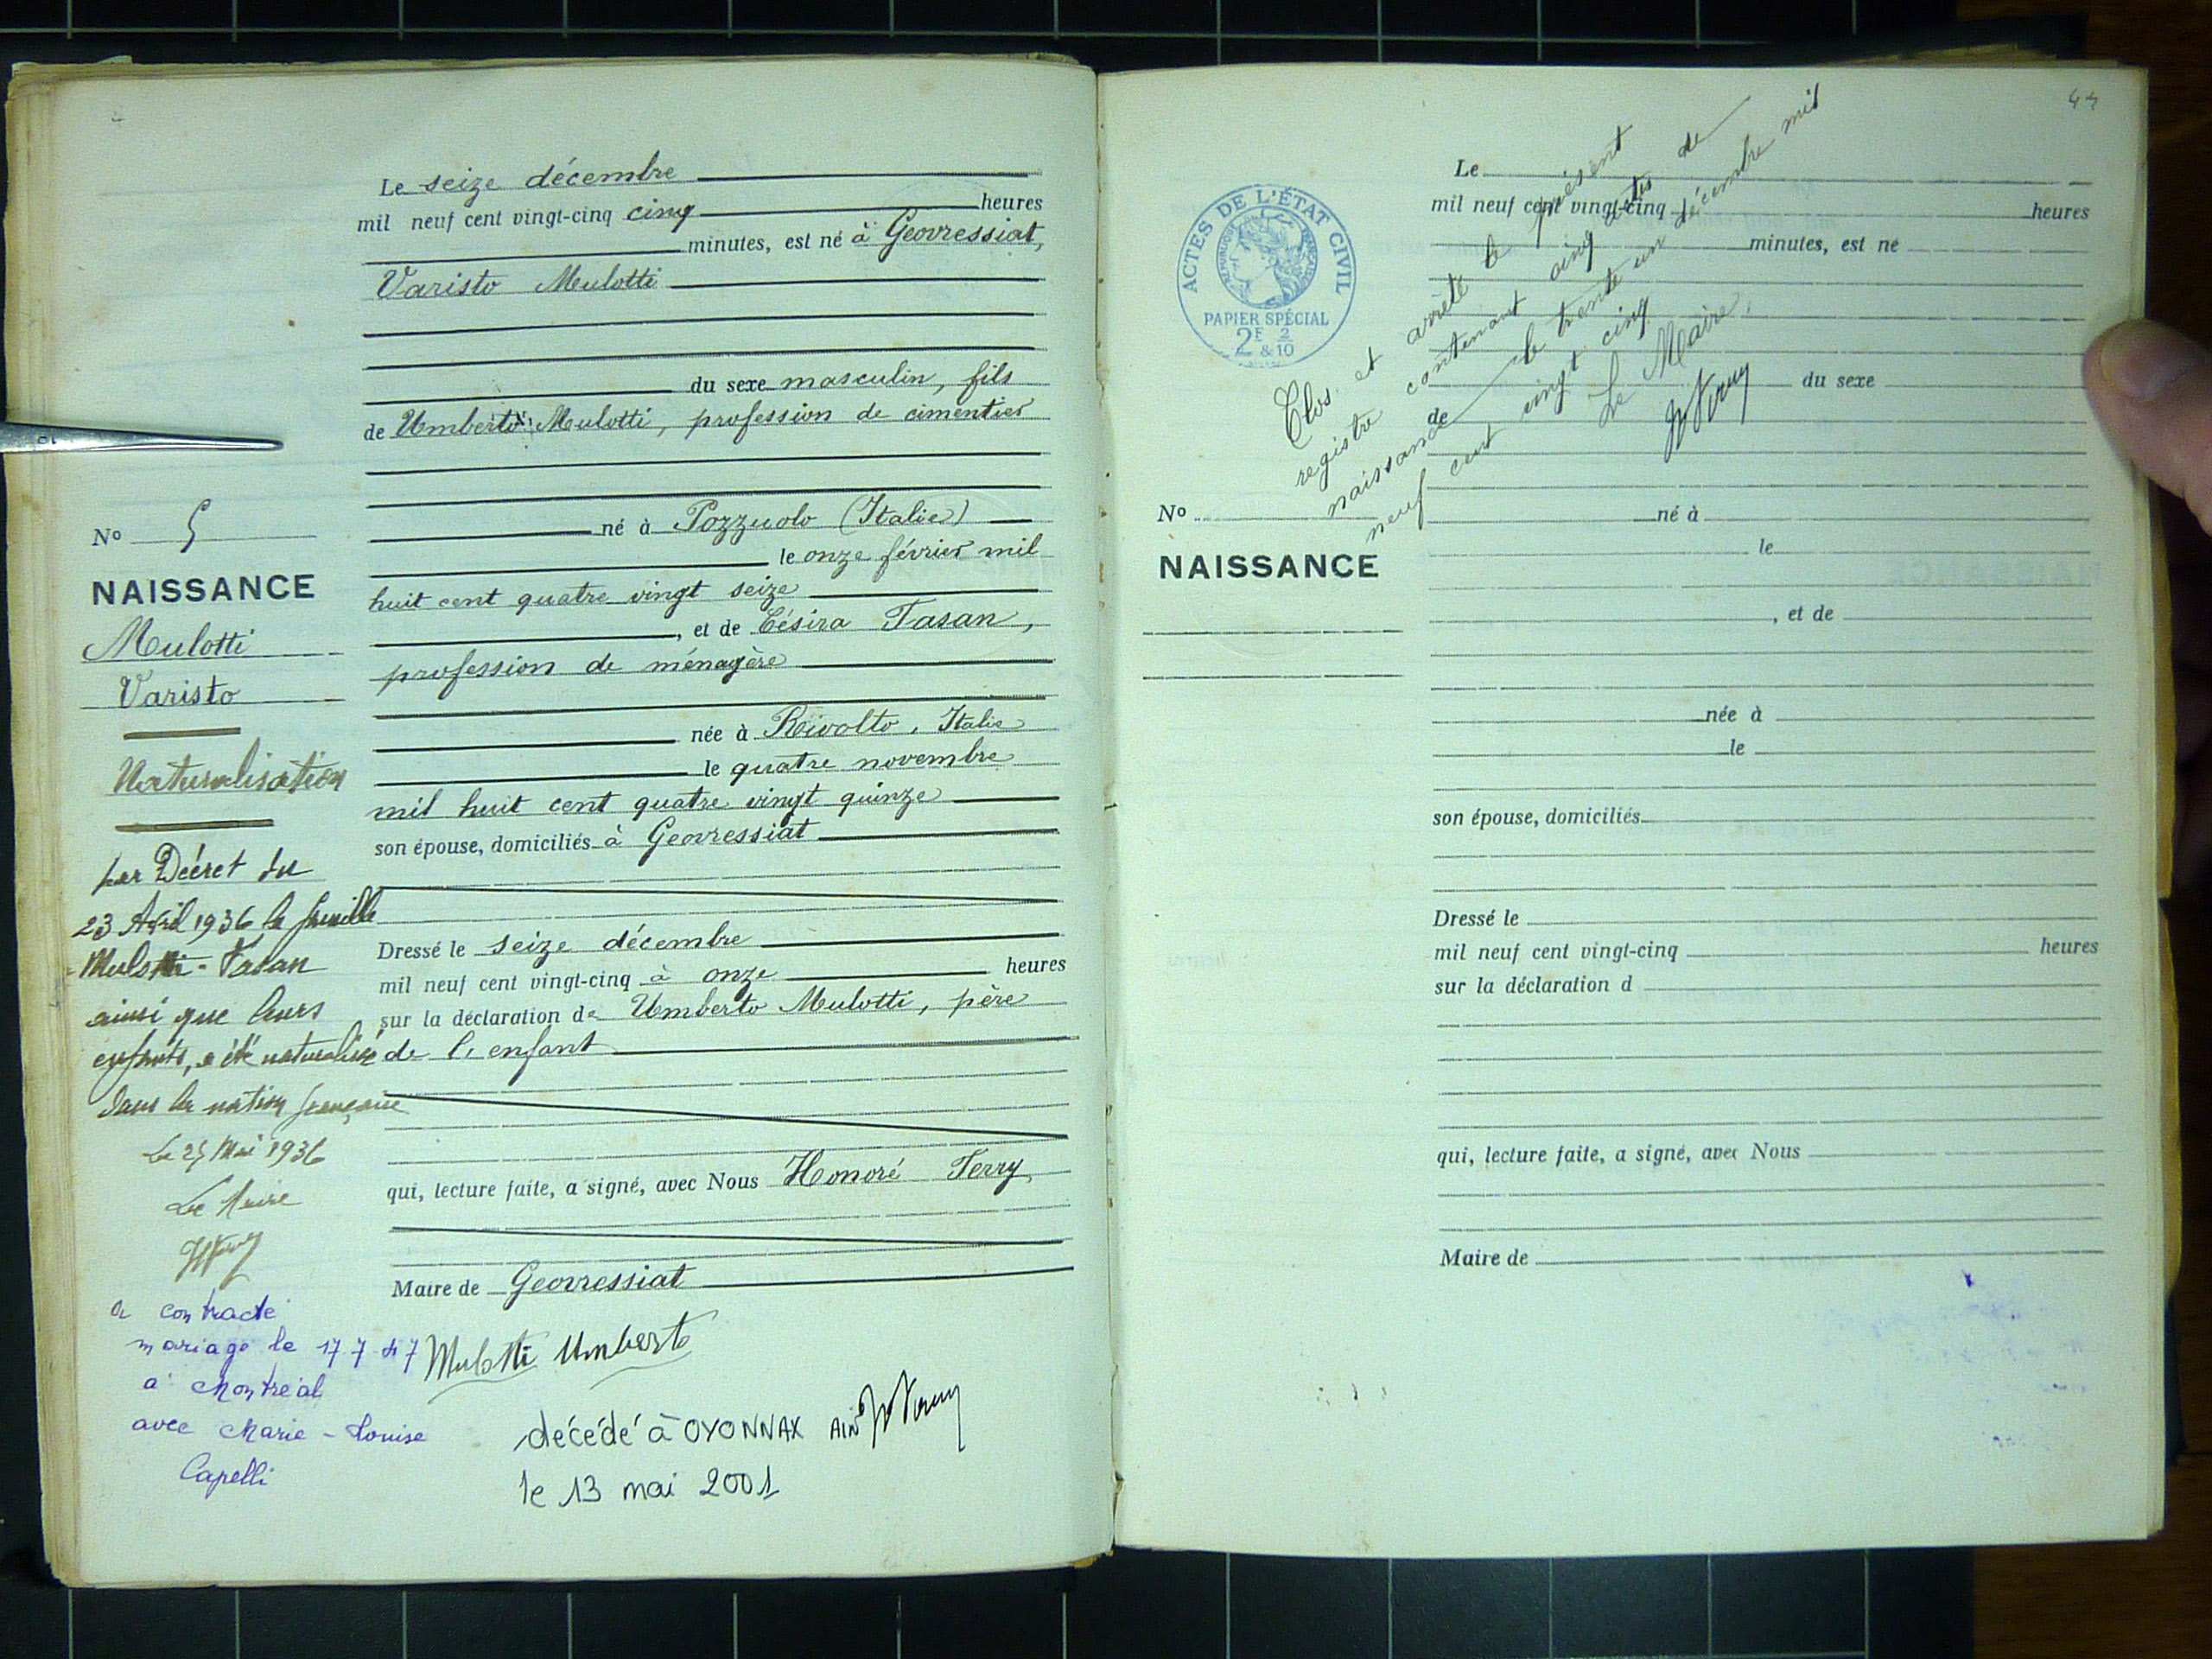 Le seize décembre
mil neuf cent vingt-cinq cinq heures
minutes, est né à Geovressiat,
Varisto Mulotti
du sexe masculin, fils
de Umberto Mulotti, profession de cimentier
né à Pozzuolo (Italie)
le onze février mil
huit cent quatre vingt seize
, et de Césira Tasan,
profession de ménagère
née à Rivolto, Italie
le quatre novembre
mil huit cent quatre vingt quinze
son épouse, domiciliés à Geovressiat
Dressé le seize décembre
mil neuf cent vingt-cinq à onze heures
sur la déclaration de Umberto Mulotti, père
de l'enfant
qui, lecture faite, a signé, avec Nous Honoré Ferry
Maire de Geovressiat
Mulotti Umberto
décédé à OYONNAX AIN
le 13 mai 2001
No 5
NAISSANCE
Mulotti
Varisto
Naturalisation
par Décret du
23 Avril 1936 la famille
Mulotti - Tasan
ainsi que leurs
enfants, a été naturalisé
dans la nation française
Le 25 Mai 1936
Le Maire
a contracté
mariage le 17 7 47
à Montréal
avec Marie-Louise
Capelli
44
ACTES DE L'ÉTAT CIVIL
RÉPUBLIQUE FRANÇAISE
PAPIER SPÉCIAL
2F & 2/10
Clos et arrêté le présent
registre contenant cinq actes de
naissance le trente un décembre mil
neuf cent vingt cinq
Le Maire,
Le
mil neuf cent vingt-cinq heures
minutes, est né
du sexe
de
né à
le
, et de
née à
le
son épouse, domiciliés
Dressé le
mil neuf cent vingt-cinq heures
sur la déclaration d
qui, lecture faite, a signé, avec Nous
Maire de
No
NAISSANCE